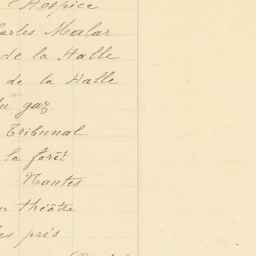 l'Hospice
Charles Malar
de la Halle
de la Halle
du gaz
Tribunal
la forêt
Nantes
théâtre
les prés